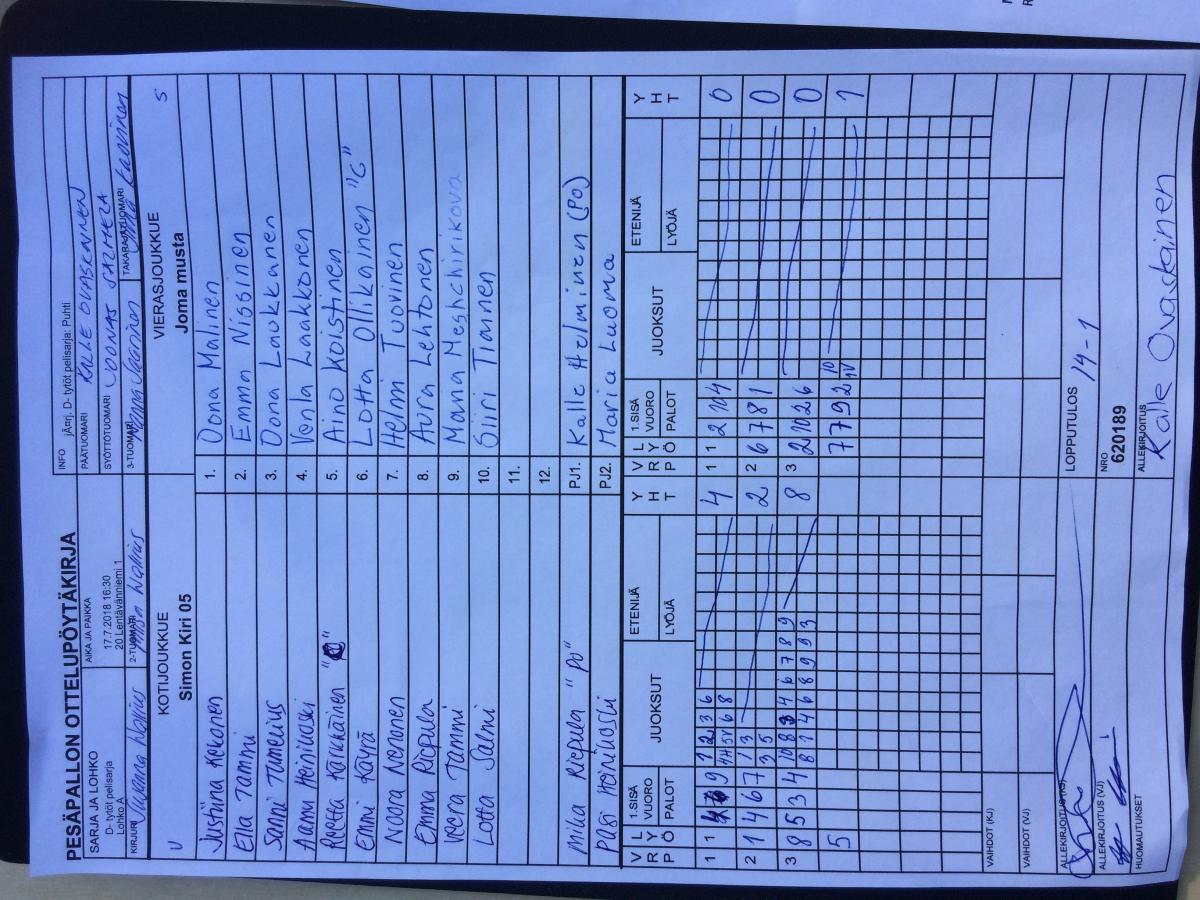 PESÄPALLON OTTELUPÖYTÄKIRJA
SARJA JA LOHKO
D- tytöt pelisarja
Lohko A
AIKA JA PAIKKA
17.7.2018 16:30
20 Lentävänniemi 1
INFO
D- tytöt pelisarja: Puhti
PÄÄTUOMARI KALLE OVASKAINEN
SYÖTTÖTUOMARI JOONAS
KIRJURI
2-TUOMARI
3-TUOMARI
TAKARAJATUOMARI
KOTIJOUKKUE
Simon Kiri 05
U
VIERASJOUKKUE
Joma musta
S
Justiina Kokonen 1. Oona Malinen
Ella Tammi 2. Emma Nissinen
Sanni Tamelius 3. Oona Laukkanen
Aamu Heinikoski 4. Venla Laakkonen
Reetta Karkkäinen 5. Aino Koistinen
Emmi Käyrä 6. Lotta Ollikainen "C"
Noora Nenonen 7. Helmi Tuovinen
Emma Riepula 8. Aura Lehtonen
Veera Tammi 9. Maria Meshchirikova
Lotta Salmi 10. Siiri Tiainen
11.
12.
Mika Riepula "PO" PJ1. Kalle Helminen (PO)
Pasi Heinikoski PJ2. Maria Luoma
V R P L Y Ö 1.SISÄ VUORO PALOT JUOKSUT ETENIJÄ LYÖJÄ Y H T V R P L Y Ö 1.SISÄ VUORO PALOT JUOKSUT ETENIJÄ LYÖJÄ Y H T
1 1 9 1 2 3 6 4 1 1 2 10 4 0
2 1 4 6 7 1 3 2 2 6 7 8 1 0
3 5
3 8 5 3 4 8 3 2 10 2 6 0
8 1 4 6 8 9 9 3
5 7 7 9 2 10 1
VAIHDOT (KJ)
VAIHDOT (VJ)
ALLEKIRJOITUS (KJ)
ALLEKIRJOITUS (VJ)
HUOMAUTUKSET
LOPPUTULOS 14-1
NRO
620189
ALLEKIRJOITUS
Kalle Ovaskainen